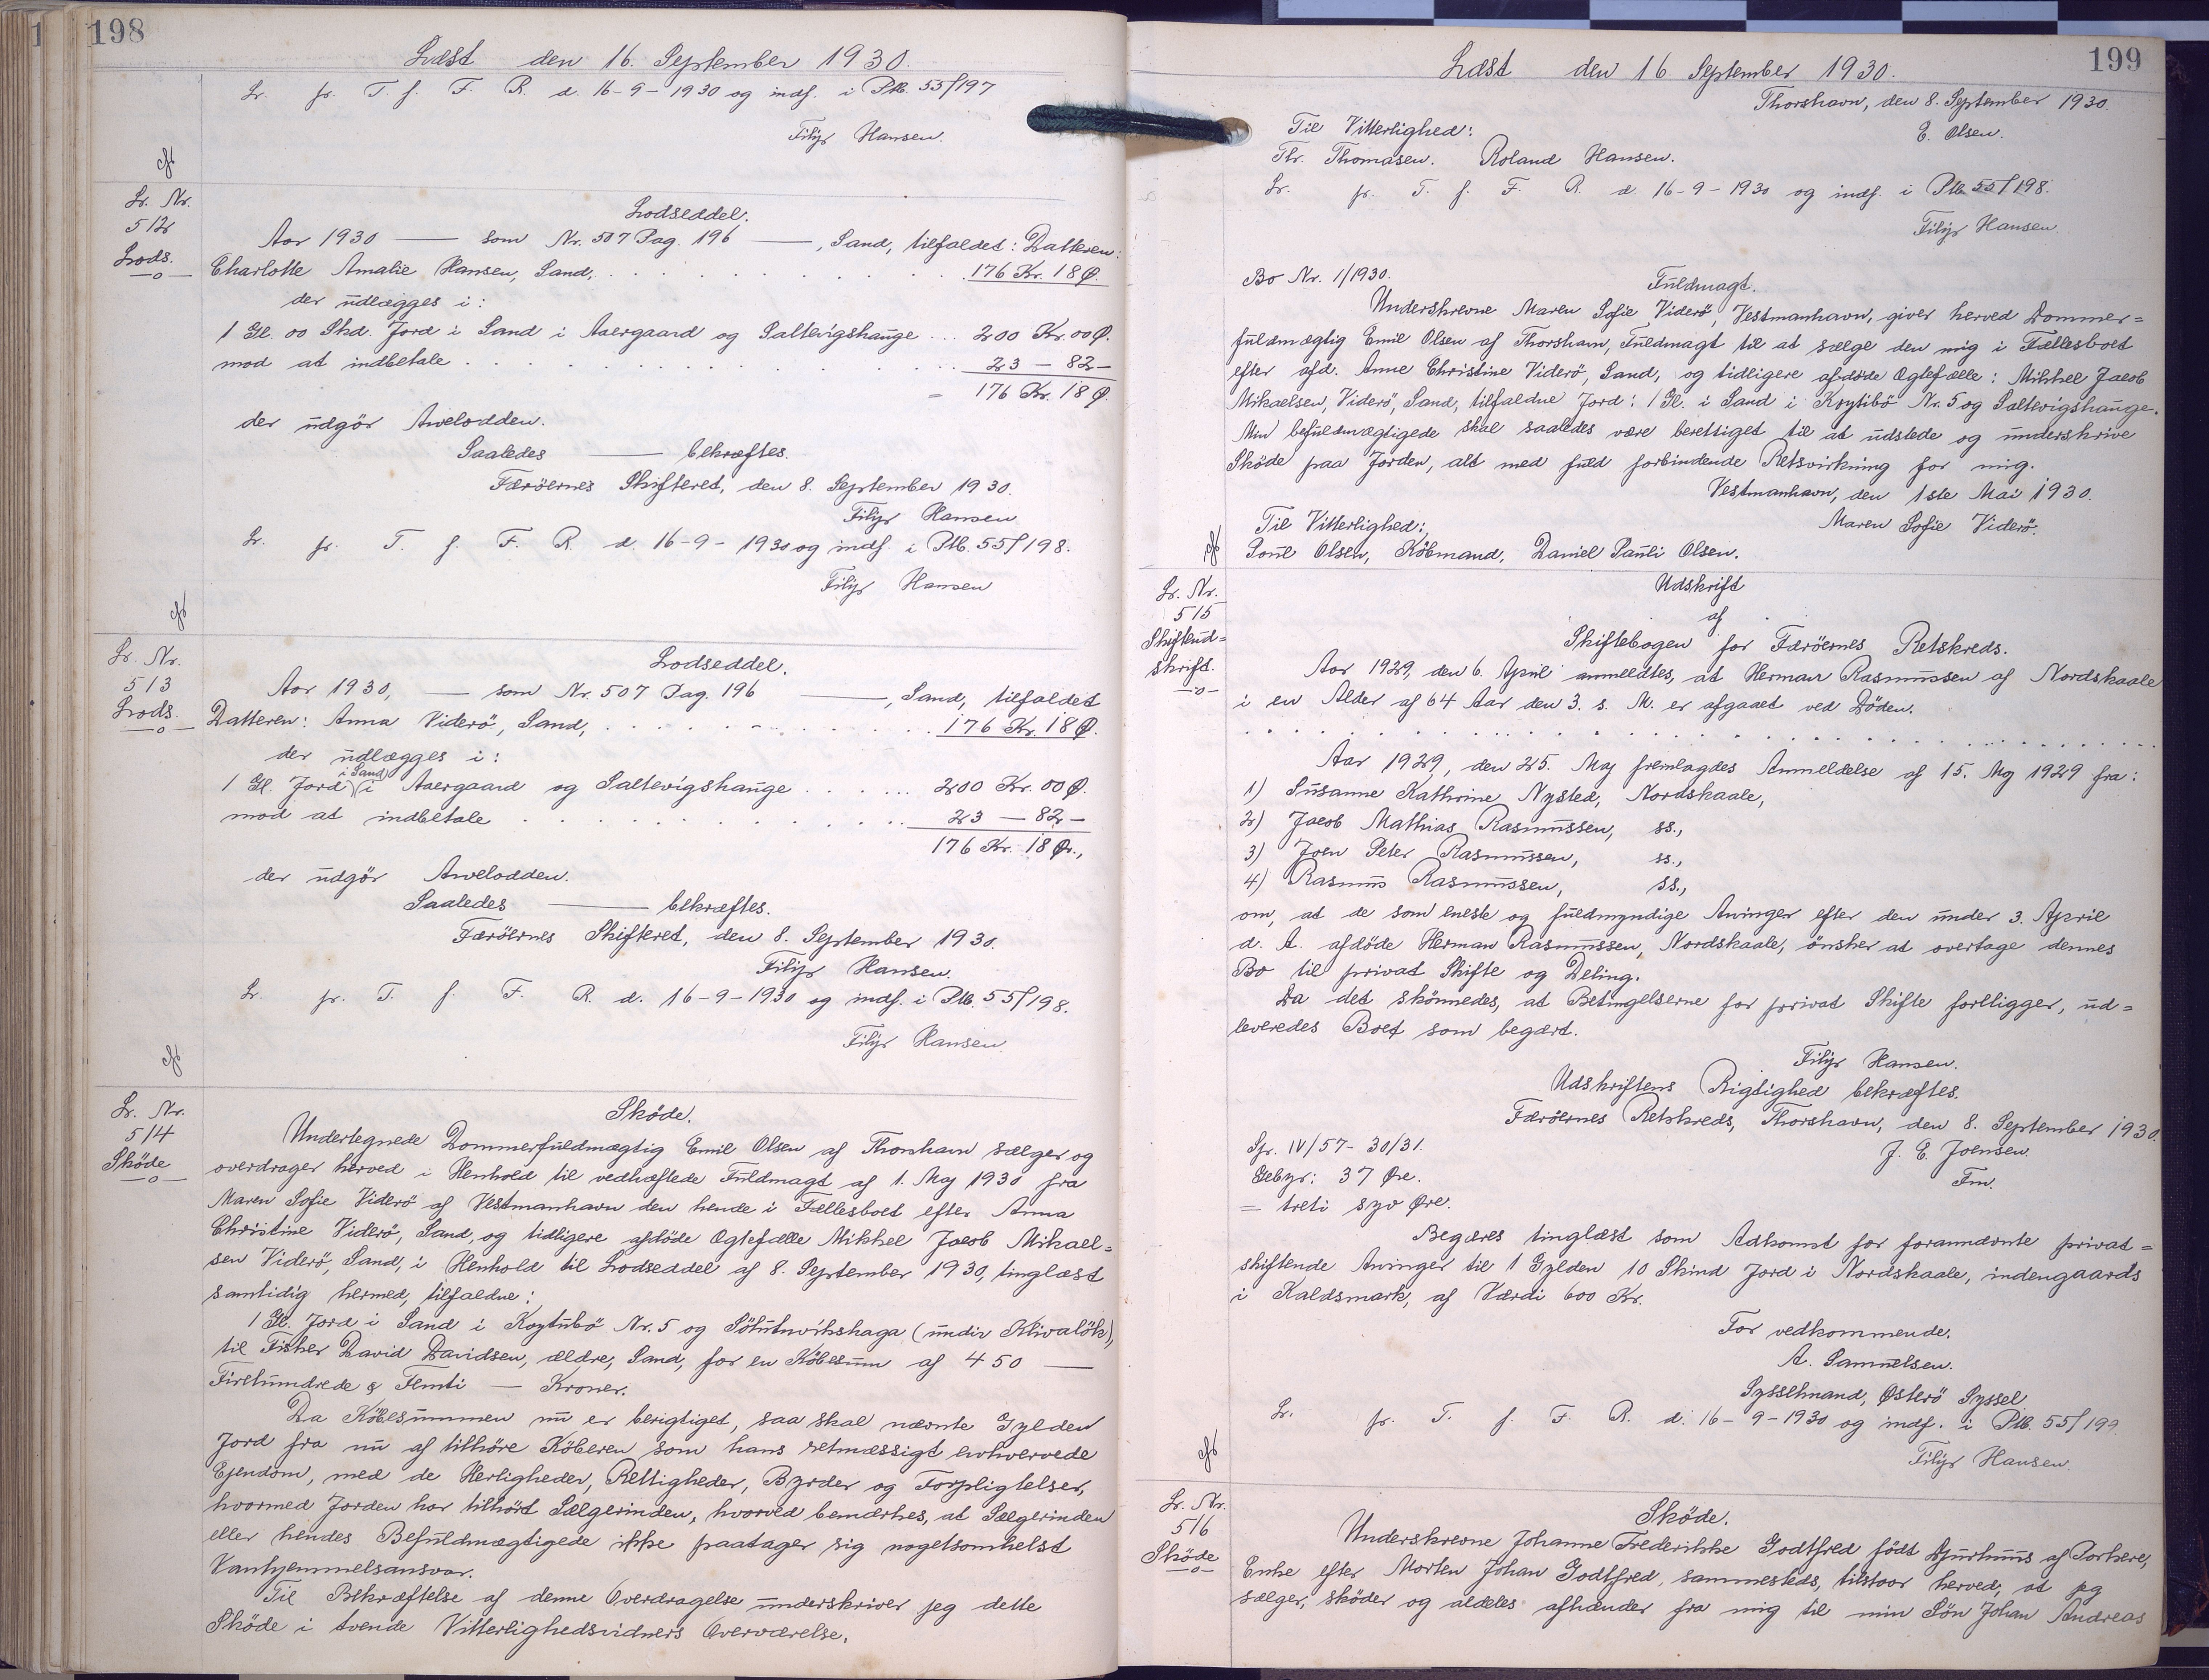 198
Læst den 16. September 1930.
Lr. fr. T. f. F. R. d. 16-9-1930 og indf. i Ptb. 55/197
Filip Hansen.
Lr. Nr.
512
Lods.
Lodseddel.
Aar 1930 — som Nr. 507 Pag. 196 —, Sand, tilfaldet: Datteren:
Charlotte Amalie Hansen, Sand, . . . 176 Kr. 18 Ø.
der udlægges i:
1 Gl. 00 Skd. Jord i Sand i Aaergaard og Saltevigshauge ... 200 Kr. 00 Ø.
mod at indbetale . . . 23 — 82 —
= 176 Kr. 18 Ø.
der udgör Arvelodden.
Saaledes — bekræftes.
Færöernes Skifteret, den 8. September 1930.
Filip Hansen
Lr. fr. T. f. F. R. d. 16-9-1930 og indf. i Ptb. 55/198.
Filip Hansen
Lr. Nr.
513
Lods.
Lodseddel.
Aar 1930, — som Nr. 507 Pag. 196 —, Sand, tilfaldet
Datteren: Anna Viderö, Sand, . . . 176 Kr. 18 Ø.
der udlægges i:
1 Gl. Jord (i Sand) i Aaergaard og Saltevigshauge . . . 200 Kr. 00 Ø.
mod at indbetale . . . 23 — 82 —
176 Kr. 18 Ør.,
der udgör Arvelodden.
Saaledes — bekræftes.
Færöernes Skifteret, den 8. September 1930.
Filip Hansen.
Lr. fr. T. f. F. R. d. 16-9-1930 og indf. i Ptb. 55/198.
Filip Hansen
Lr. Nr.
514
Sköde
Sköde.
Undertegnede Dommerfuldmægtig Emil Olsen af Thorshavn sælger og
overdrager herved i Henhold til vedhæftede Fuldmagt af 1. Maj 1930 fra
Maren Sofie Viderö af Vestmanhavn den hende i Fællesboet efter Anna
Christine Viderö, Sand, og tidligere afdöde Ægtefælle Mikkel Jacob Mikael=
sen Viderö, Sand, i Henhold til Lodseddel af 8. September 1930, tinglæst
samtidig hermed, tilfaldne:
1 Gl. Jord i Sand i Koytubö Nr. 5 og (undir Klivalök),
til Fisker David Davidsen, ældre, Sand, for en Köbesum af 450 —
Firehundrede & Femti — Kroner.
Da Köbesummen nu er berigtiget, saa skal nævnte Gylden
Jord fra nu af tilhöre Köberen som hans retmæssigt erhvervede
Ejendom, med de Herligheder, Rettigheder, Byrder og Forpligtelser,
hvormed Jorden har tilhört Sælgerinden, hvorved bemærkes, at Sælgerinden
eller hendes Befuldmægtigede ikke paatager sig nogetsomhelst
Vanhjemmelsansvar.
Til Bekræftelse af denne Overdragelse underskriver jeg dette
Sköde i tvende Vitterlighedsvidners Overværelse.
199
Læst den 16. September 1930.
Thorshavn, den 8. September 1930.
E. Olsen.
Til Vitterlighed:
Thr. Thomasen. Roland Hansen.
Lr. fr. T. f. F. R. d. 16-9-1930 og indf. i Ptb 55/198.
Filip Hansen.
Bo Nr. 1/1930.
Fuldmagt.
Underskrevne Maren Sofie Viderö, Vestmanhavn, giver herved Dommer=
fuldmægtig Emil Olsen af Thorshavn, Fuldmagt til at sælge den mig i Fællesboet
efter afd. Anne Christine Viderö, Sand, og tidligere afdöde Ægtefælle: Mikkel Jacob
Mikaelsen, Viderö, Sand, tilfaldne Jord: 1 Gl. i Sand i Koytibö Nr. 5 og Saltevigshauge.
Min befuldmægtigede skal saaledes være berettiget til at udstede og underskrive
Sköde paa Jorden, alt med fuld forbindende Retsvirkning for mig.
Vestmanhavn, den 1ste Mai 1930.
Maren Sofie Viderö.
Til Vitterlighed:
Poul Olsen, Köbmand, Daniel Pauli Olsen.
Lr. Nr.
515
Skifteud=
skrift.
Udskrift
af
Skiftebogen for Færöernes Retskreds.
Aar 1929, den 6. April anmeldtes, at Herman Rasmussen af Nordskaale
i en Alder af 64 Aar den 3. s. M. er afgaaet ved Döden.
Aar 1929, den 25. Maj fremlagdes Anmeldelse af 15. Maj 1929 fra:
1) Susanne Kathrine Nysted, Nordskaale,
2) Jacob Mathias Rasmussen, ss.,
3) Joen Peter Rasmussen, ss.,
4) Rasmus Rasmussen, ss.,
om, at de som eneste og fuldmyndige Arvinger efter den under 3. April
d. A. afdöde Herman Rasmussen, Nordskaale, önsker at overtage dennes
Bo til privat Skifte og Deling.
Da det skönnedes, at Betingelserne for privat Skifte forelligger, ud=
leveredes Boet som begært.
Filip Hansen.
Udskriftens Rigtighed bekræftes.
Færöernes Retskreds, Thorshavn, den 8. September 1930.
J. E. Joensen.
Fm.
Spr. IV/57 - 30/31.
Gebyr: 37 Øre.
= treti syv Øre.
Begæres tinglæst som Adkomst for forannævnte privat=
skiftende Arvinger til 1 Gylden 10 Skind Jord i Nordskaale, indengaards
i Kaldsmark, af Værdi 600 Kr.
For vedkommende.
A. Samuelsen.
Sysselmand, Østerö Syssel
Lr. fr. T. f. F. R. d. 16-9-1930 og indf. i Ptb. 55/199.
Filip Hansen.
Lr. Nr.
516
Sköde
Sköde.
Underskrevne Johanne Frederikke Godtfred födt Djurhuus af Porkere,
Enke efter Morten Johan Godtfred, sammesteds, tilstaar herved, at jeg
sælger, sköder og aldeles afhænder fra mig til min Sön Johan Andreas